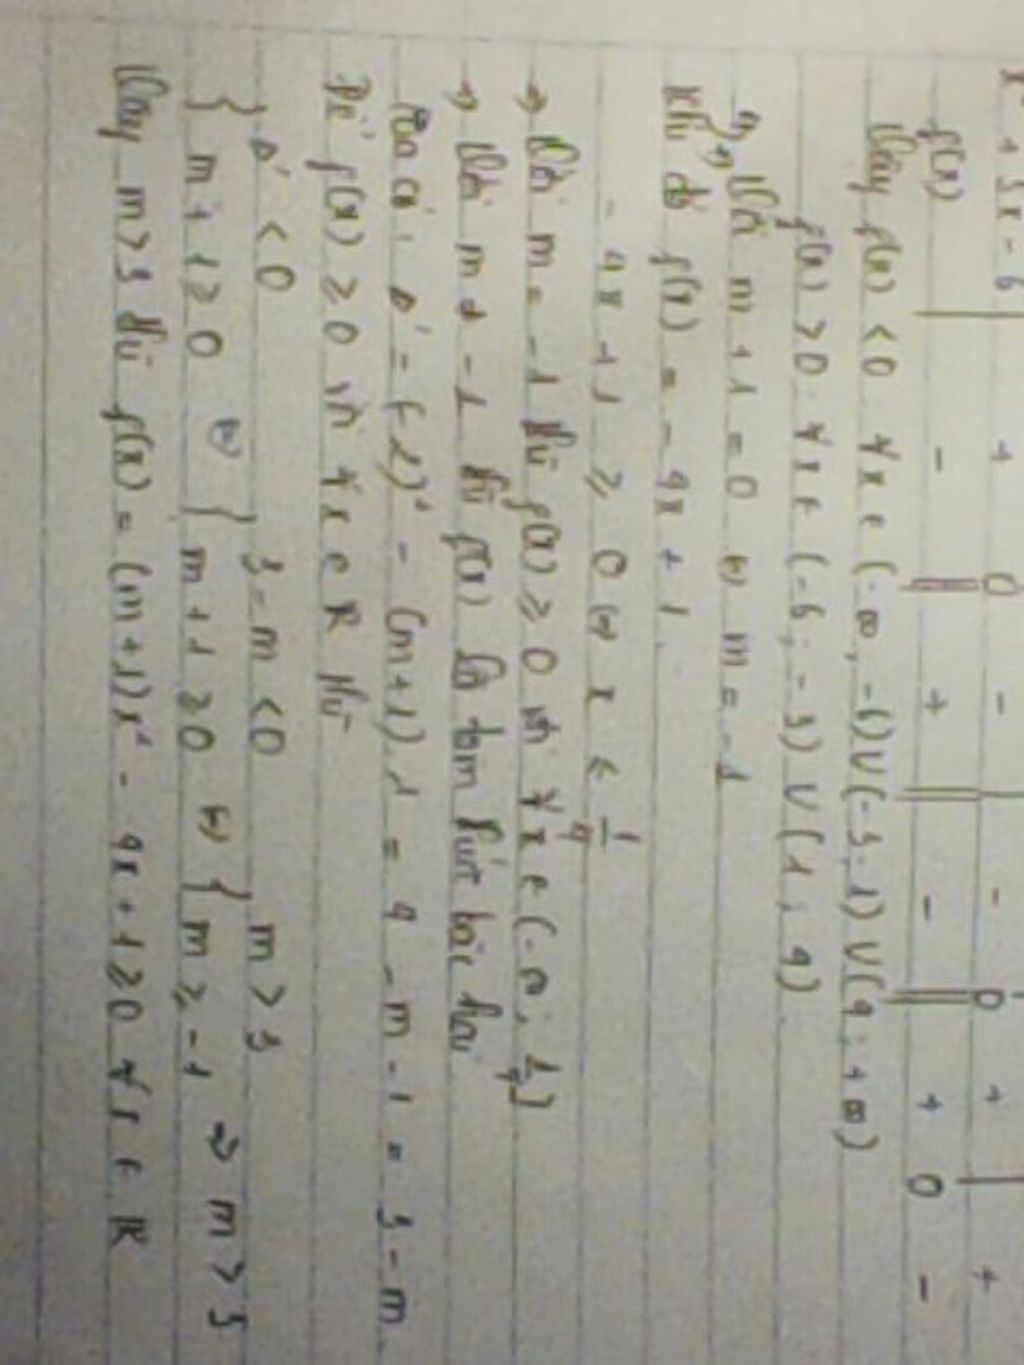 x² + 5x - 6 + 0 - - 0 + +
f(x) - + - + 0 -
Vậy f(x) < 0 ∀x ∈ (-∞, -6) ∪ (-3, 1) ∪ (4; +∞)
f(x) > 0 ∀x ∈ (-6; -3) ∪ (1; 4)
Với m + 1 = 0 ⇔ m = -1
Khi đó f(x) = - 4x + 1
- 4x + 1 ≥ 0 ⇔ x ≤ 1/4
→ Với m = -1 thì f(x) ≥ 0 với ∀x ∈ (-∞; 1/4]
→ Với m ≠ -1 thì f(x) là tam thức bậc hai
Ta có: Δ' = (-2)² - (m+1).1 = 4 - m - 1 = 3 - m
Để f(x) ≥ 0 với ∀x ∈ R thì
{ Δ' < 0 { 3 - m < 0 { m > 3
m + 1 ≥ 0 ⇔ m + 1 ≥ 0 ⇔ m ≥ -1 ⇒ m > 3
Vậy m > 3 thì f(x) = (m+1)x² - 4x + 1 ≥ 0 ∀x ∈ R